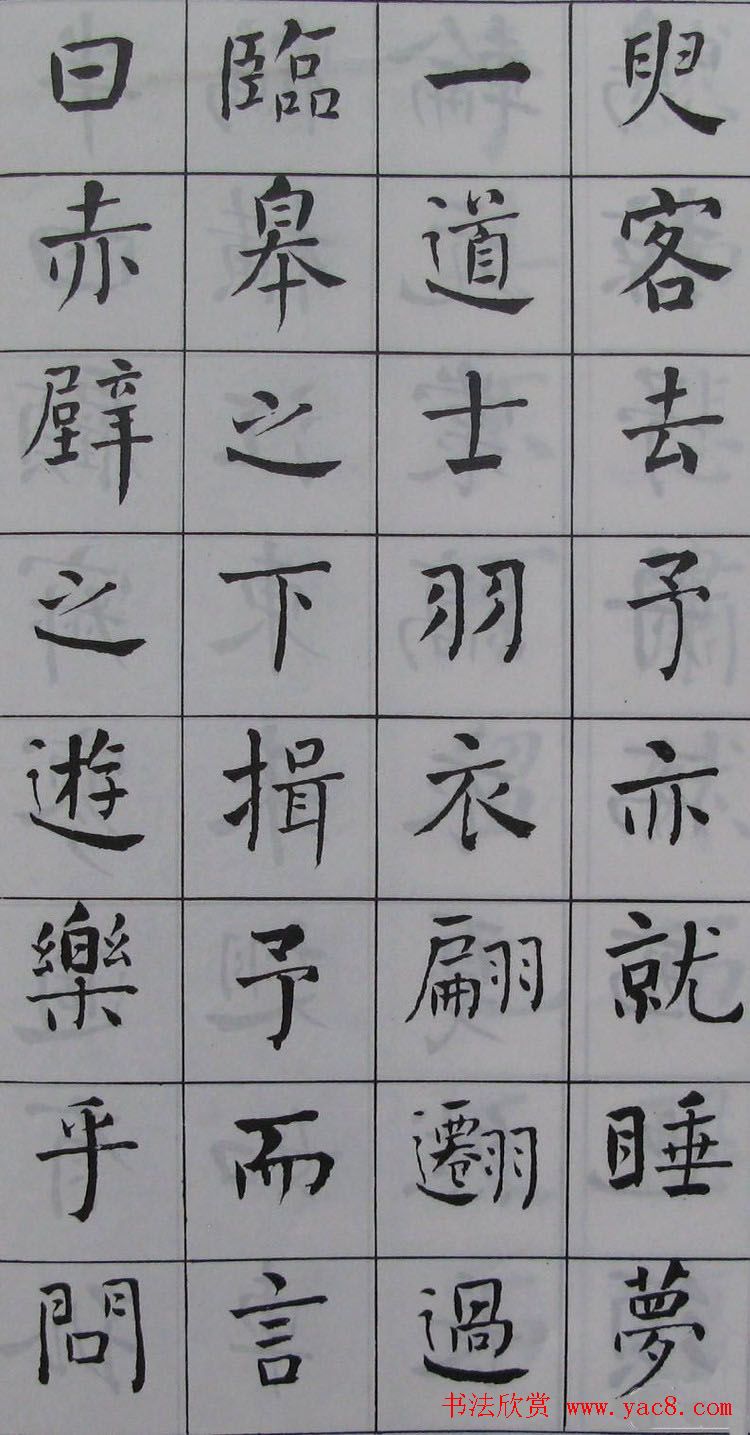 臾客去予亦就睡夢
一道士羽衣翩䙴過
臨皋之下揖予而言
曰赤壁之遊樂乎問
书法欣赏 www.yac8.com